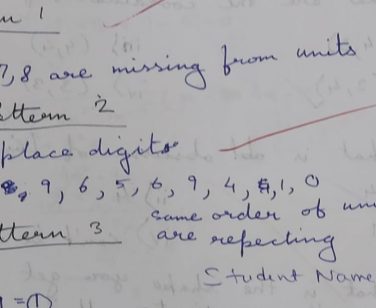 7, 8 are missing from units
ttern 2
place digits
9, 6, 5, 6, 9, 4, 1, 0
same order of
ttern 3 are repecting
Student Name